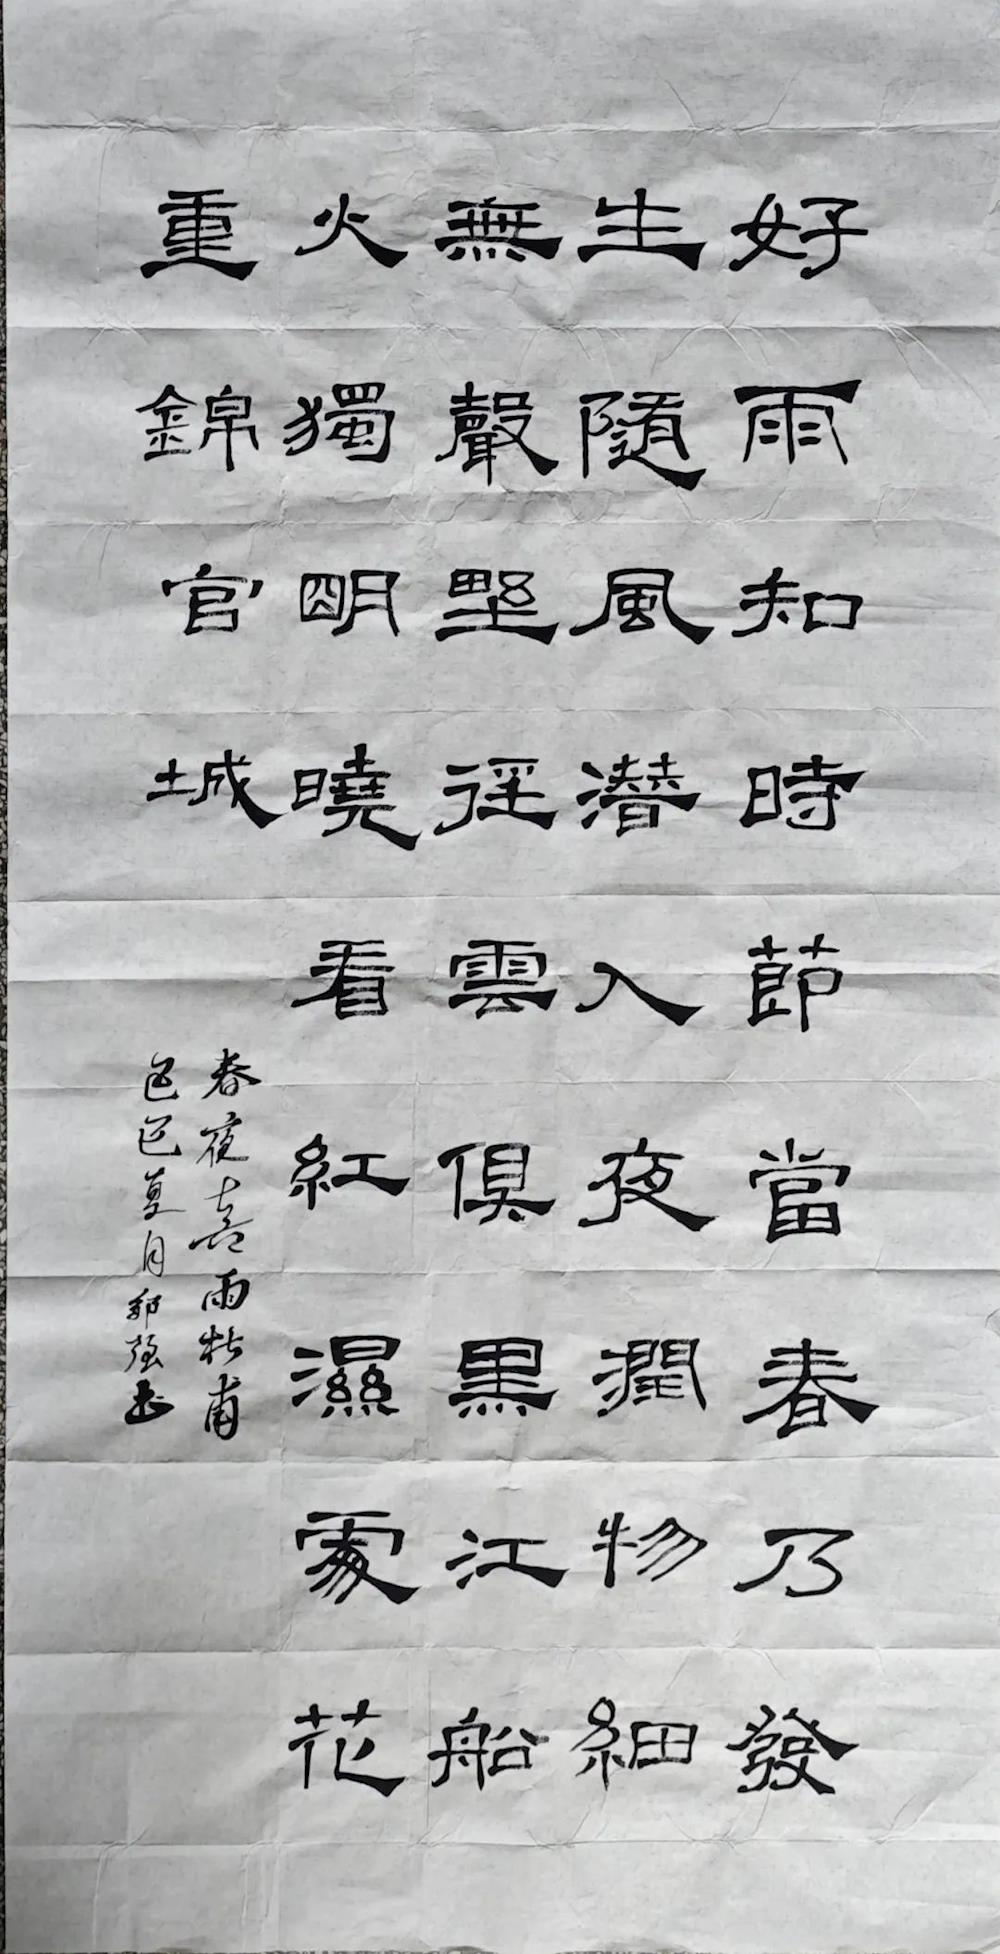 好雨知時節當春乃發
生隨風潛入夜潤物細
無聲野徑雲俱黑江船
火獨明曉看紅濕處花
重錦官城
春夜喜雨杜甫
夏月郭強書